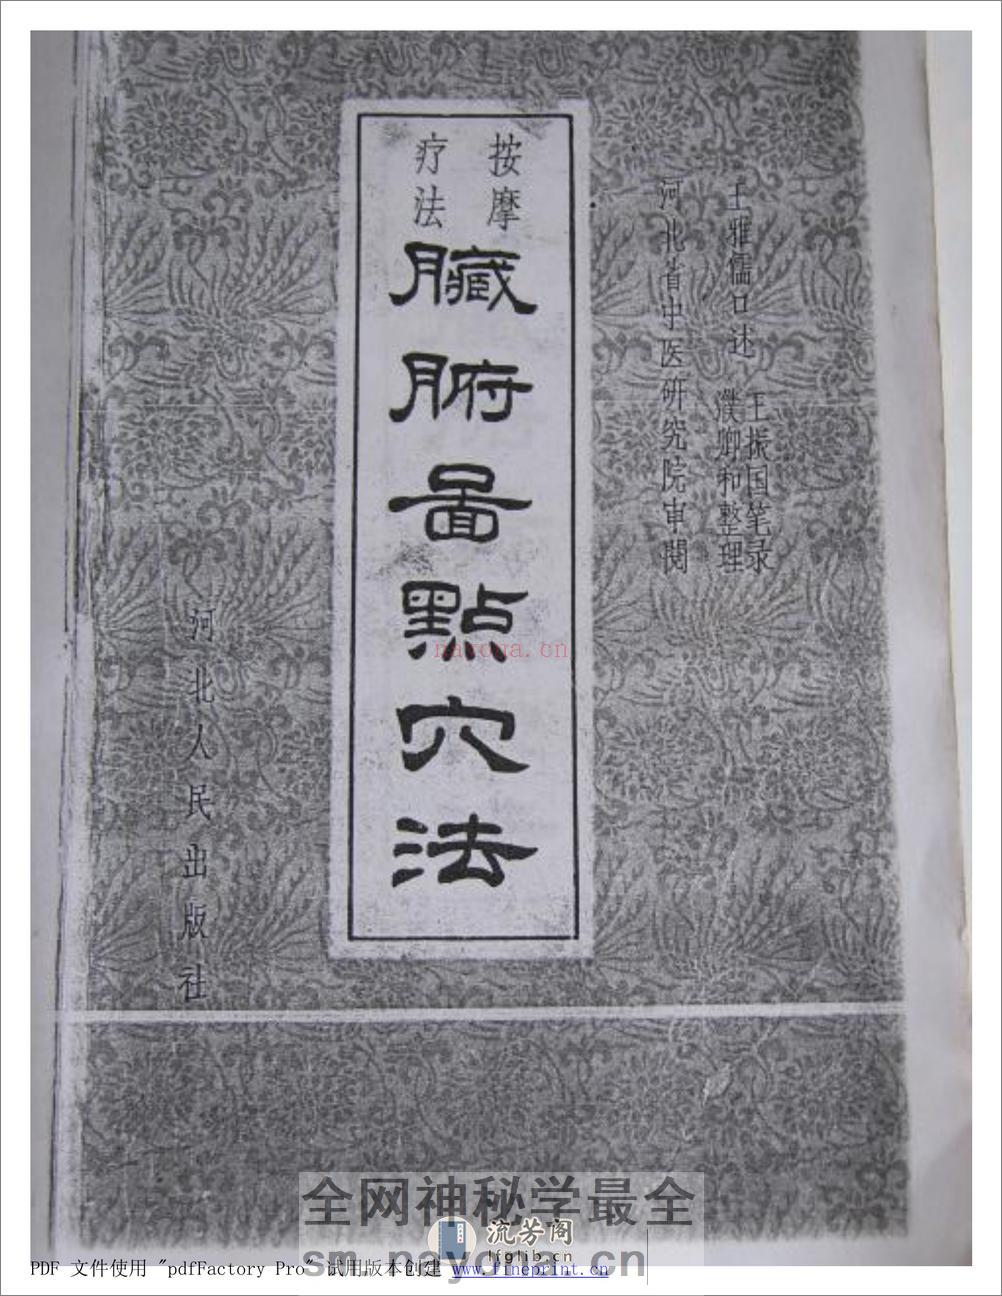 按摩
疗法
臟腑啚點穴法
王雅儒口述
王振国笔录
濮卿和整理
河北省中医研究院审閱
河北人民出版社
nayona.cn
全网神秘学最全
流芳阁
lfglib.cn
sm.nayona.cn
PDF 文件使用 "pdfFactory Pro" 试用版本创建 www.fineprint.cn